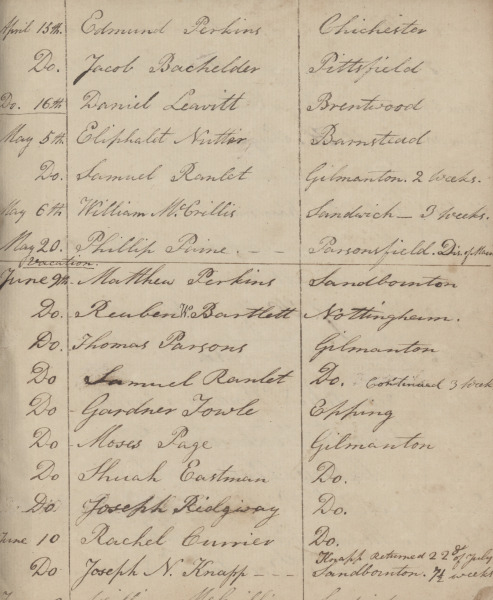 April 15th. Edmund Perkins Chichester
Do. Jacob Bachelder Pittsfield
Do. 16th Daniel Leavitt Brentwood
May 5th. Eliphalet Nutter Barnstead
Do. Samuel Ranlet Gilmanton. 2 weeks.
May 6th William McCrillis Sandwich — 3 weeks.
May 20. Phillip Paine. - - Parsonsfield. Dis. of
Vacation.
June 9th. Matthew Perkins Sandbornton
Do. Reuben Wm. Bartlett Nottingham.
Do. Thomas Parsons Gilmanton
Do Samuel Ranlet Do. Continued 3 week
Do Gardner Towle Epping
Do Moses Page Gilmanton
Do Shuah Eastman Do.
Do Joseph Ridgway Do.
June 10 Rachel Currier Do.
Knapp returned 22d of July
Do Joseph N. Knapp - - - Sandbornton. 7½ weeks